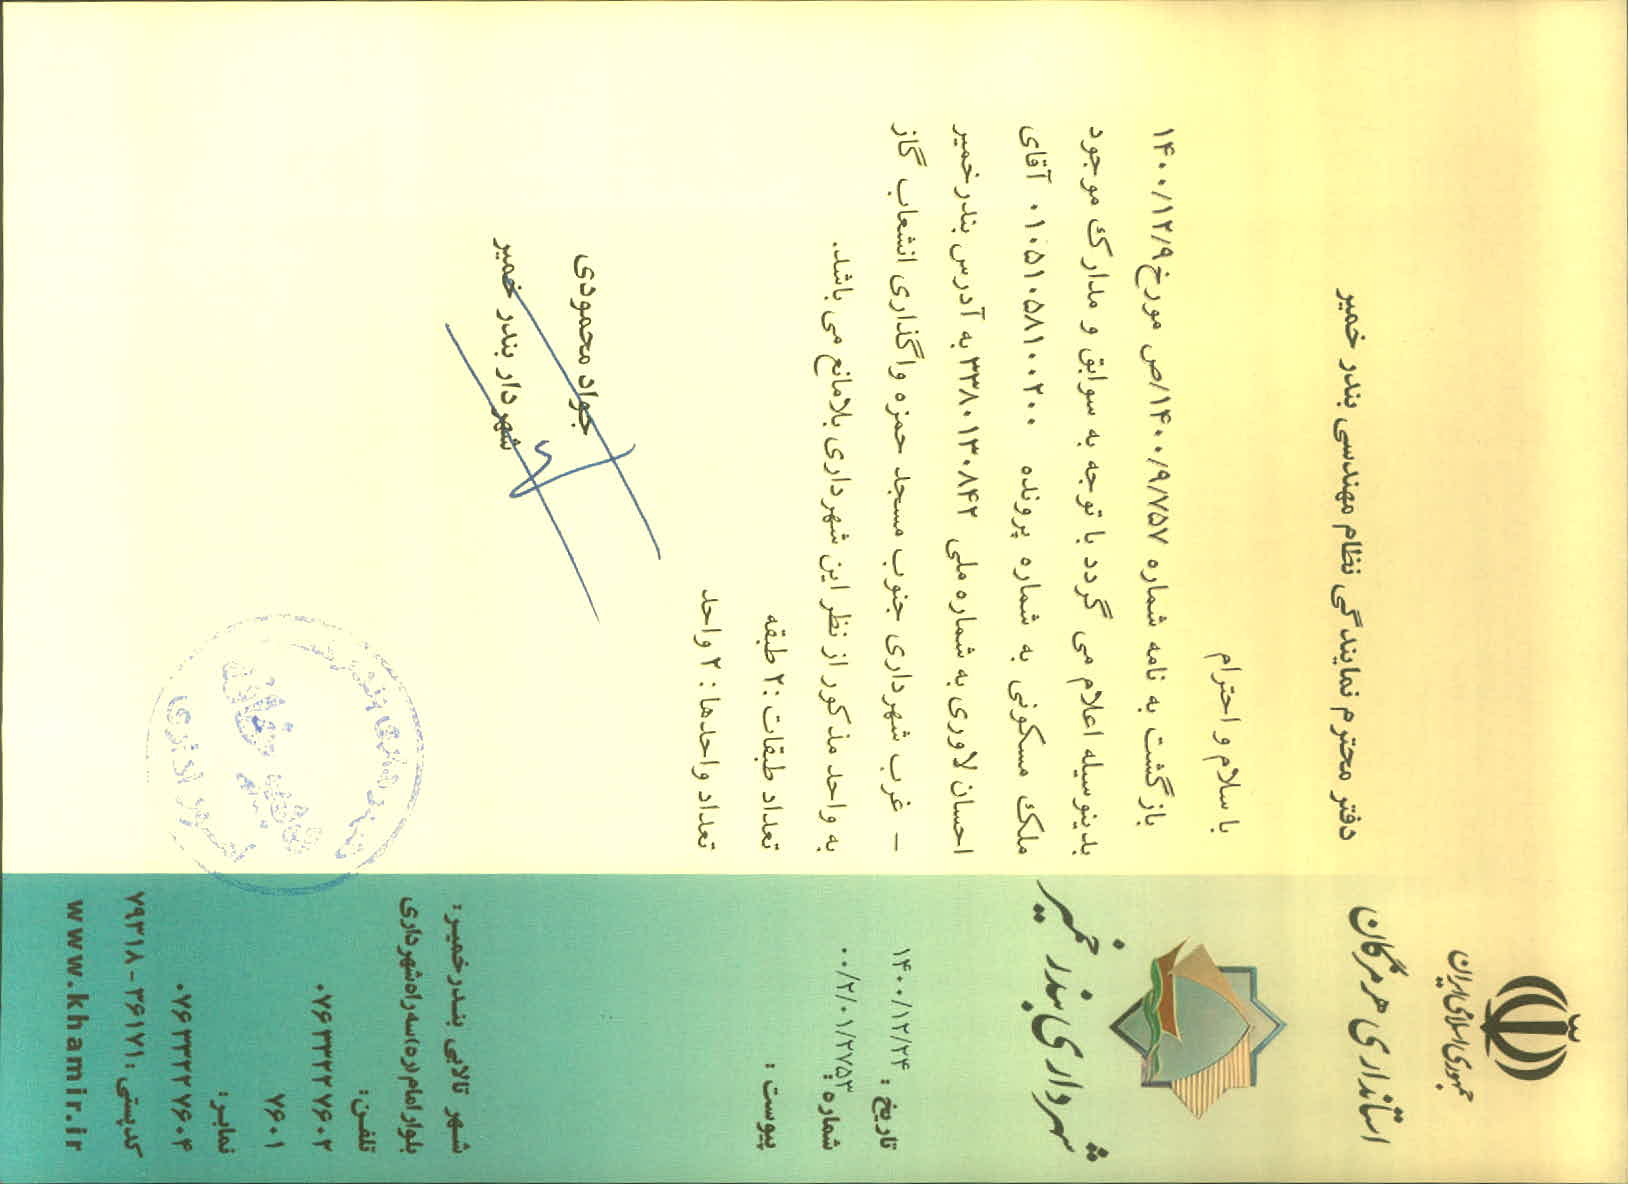 جمهوری اسلامی ایران
استانداری هرمزگان
شهرداری بندر خمیر
تاریخ : ۱۴۰۰/۱۲/۲۴
شماره: ۰۰/۲/۰۱/۲۷۵۳
پیوست :
دفتر محترم نمایندگی نظام مهندسی بندر خمیر
با سلام و احترام
بازگشت به نامه شماره ۱۴۰۰/۹/۷۵۷/ص مورخ ۱۴۰۰/۱۲/۹
بدینوسیله اعلام می گردد با توجه به سوابق و مدارک موجود
ملک مسکونی به شماره پرونده ۰۱۰۵۱۰۵۸۱۰۰۲۰۰ آقای
احسان لاوری به شماره ملی ۳۳۸۰۱۳۰۸۴۲ به آدرس بندرخمیر
– غرب شهرداری جنوب مسجد حمزه واگذاری انشعاب گاز
به واحد مذکور از نظر این شهرداری بلامانع می باشد.
تعداد طبقات :۲ طبقه
تعداد واحدها : ۲ واحد
جواد محمودی
شهردار بندر خمیر
شهر تالابی بندرخمیر:
بلوار امام (ره) سه راه شهرداری
تلفن:
۰۷۶۳۳۲۲۷۶۰۲
۷۶۰۱
نمابر:
۰۷۶۳۳۲۲۷۶۰۴
کدپستی : ۳۶۱۷۱ - ۷۹۳۱۸
www.khamir.ir